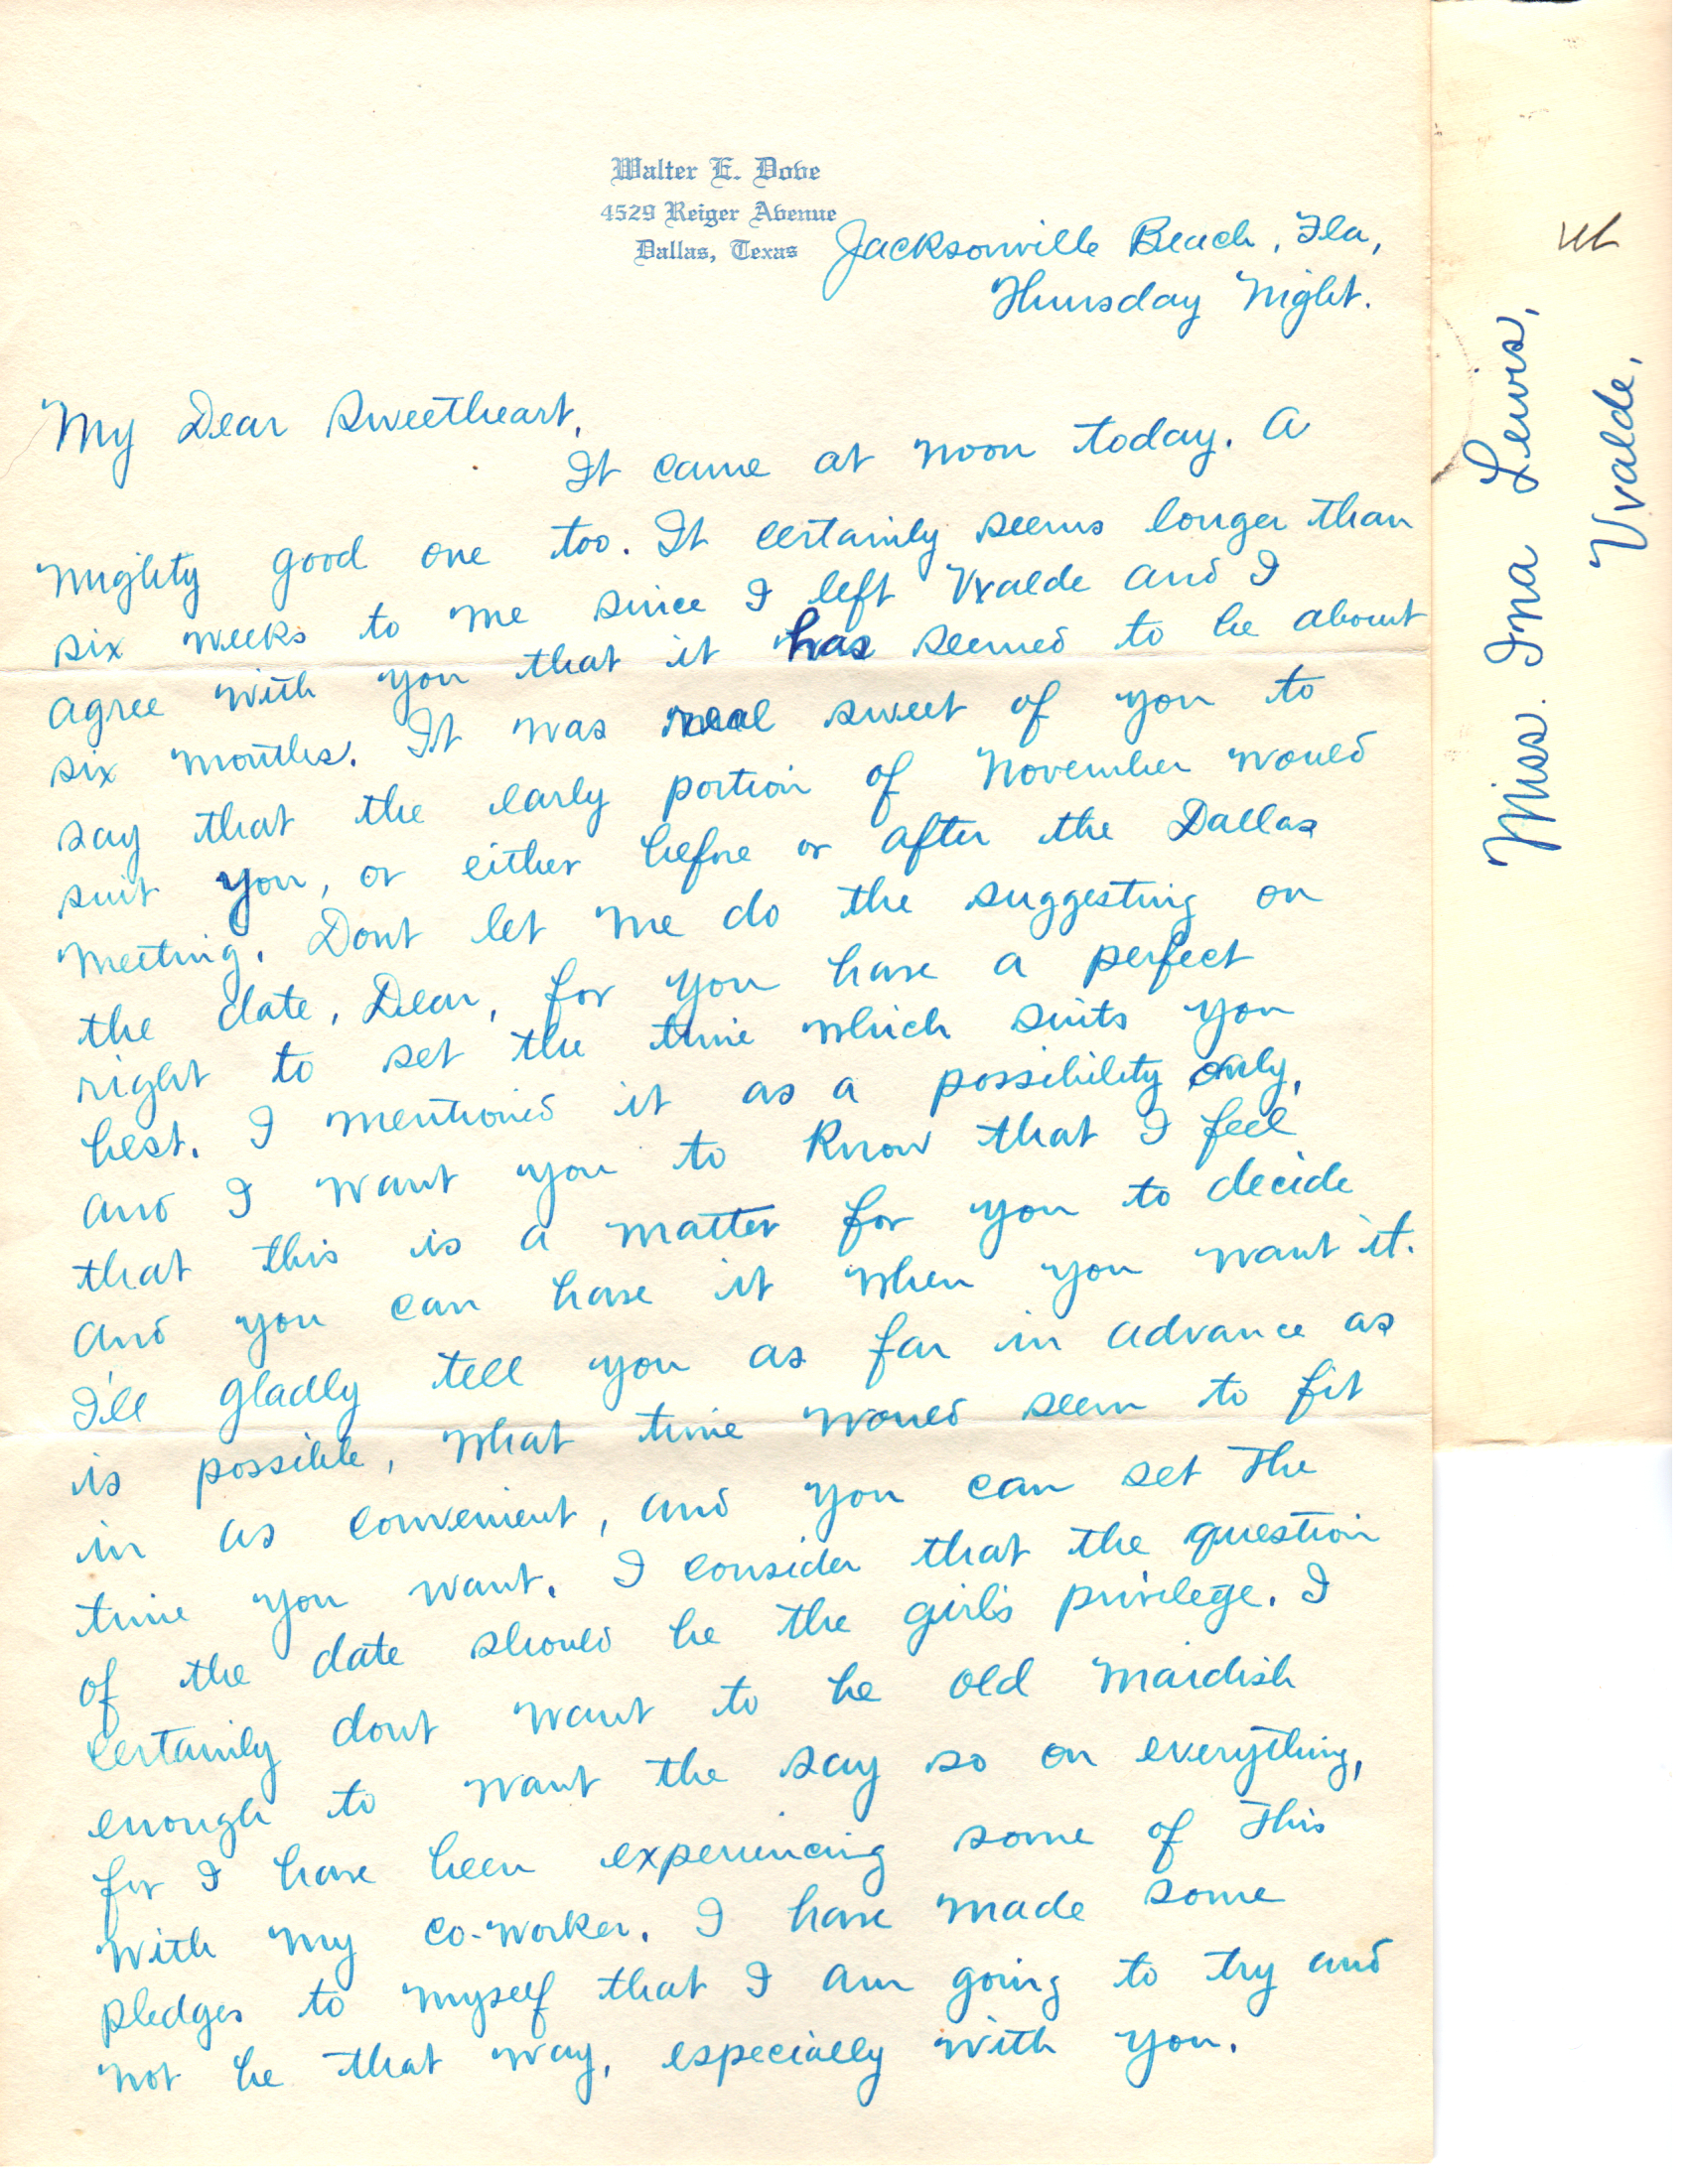 Walter E. Dove
4529 Reiger Avenue
Dallas, Texas
Jacksonville Beach, Fla,
Thursday Night.
My Dear Sweetheart,
It came at noon today. A
mighty good one too. It certainly seems longer than
six weeks to me since I left Uvalde and I
agree with you that it has seemed to be about
six months. It was real sweet of you to
say that the early portion of November would
suit you, or either before or after the Dallas
meeting. Dont let me do the suggesting on
the date, Dear, for you have a perfect
right to set the time which suits you
best. I mentioned it as a possibility only,
and I want you to know that I feel
that this is a matter for you to decide
and you can have it when you want it.
I'll gladly tell you as far in advance as
is possible, what time would seem to fit
in as convenient, and you can set the
time you want. I consider that the question
of the date should be the girls privilege. I
certainly dont want to be old maidish
enough to want the say so on everything,
for I have been experiencing some of this
with my co-worker. I have made some
pledges to myself that I am going to try and
not be that way, especially with you.
Miss. Ina Lewis,
Uvalde,